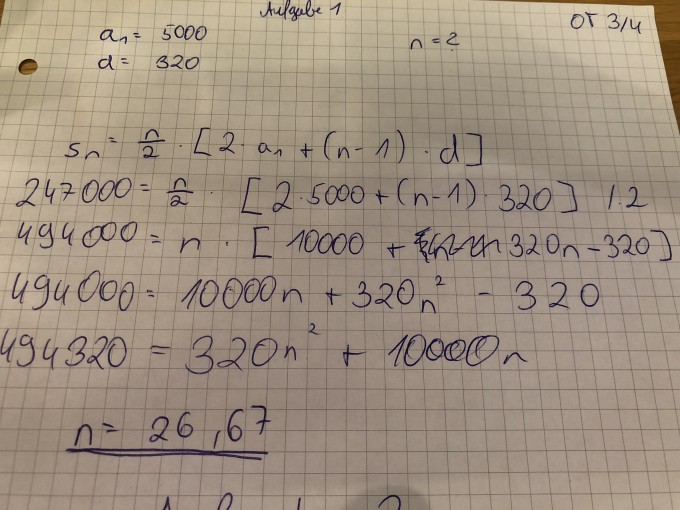 Aufgabe 1
OT 3/4
a₁ = 5000
n = ?
d = 320
sₙ = n/2 · [2 · a₁ + (n-1) · d]
247000 = n/2 · [2·5000 + (n-1)·320] |·2
494000 = n · [10000 + 320n - 320]
494000 = 10000n + 320n² - 320
494320 = 320n² + 10000n
n = 26,67